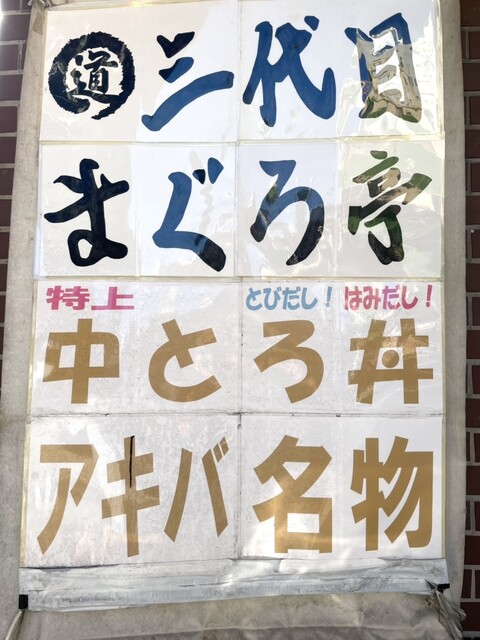 道 三代目
まぐろ亭
特上 とびだし！はみだし！
中とろ丼
アキバ名物